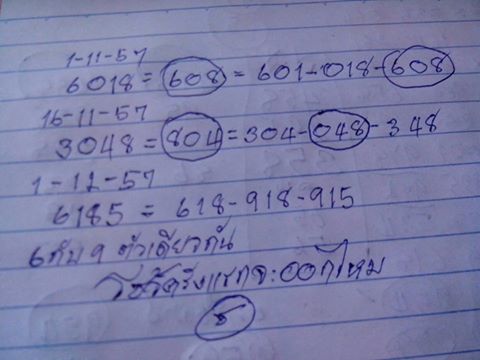 1-11-57
6018 = 608 = 601-018-608
16-11-57
3048 = 804 = 304-048-348
1-12-57
6185 = 618-918-915
6 กับ 9 ตัวเดียวกัน
จะออกไหม